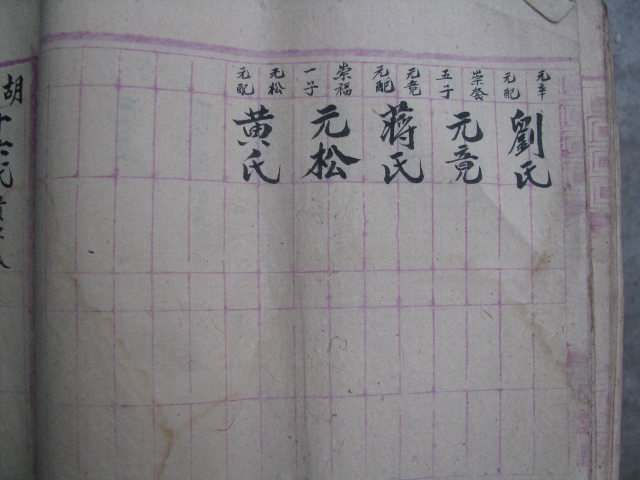 元辛元配
劉氏
崇發五子
元竟
元竟元配
蔣氏
崇福一子
元松
元松元配
黃氏
胡